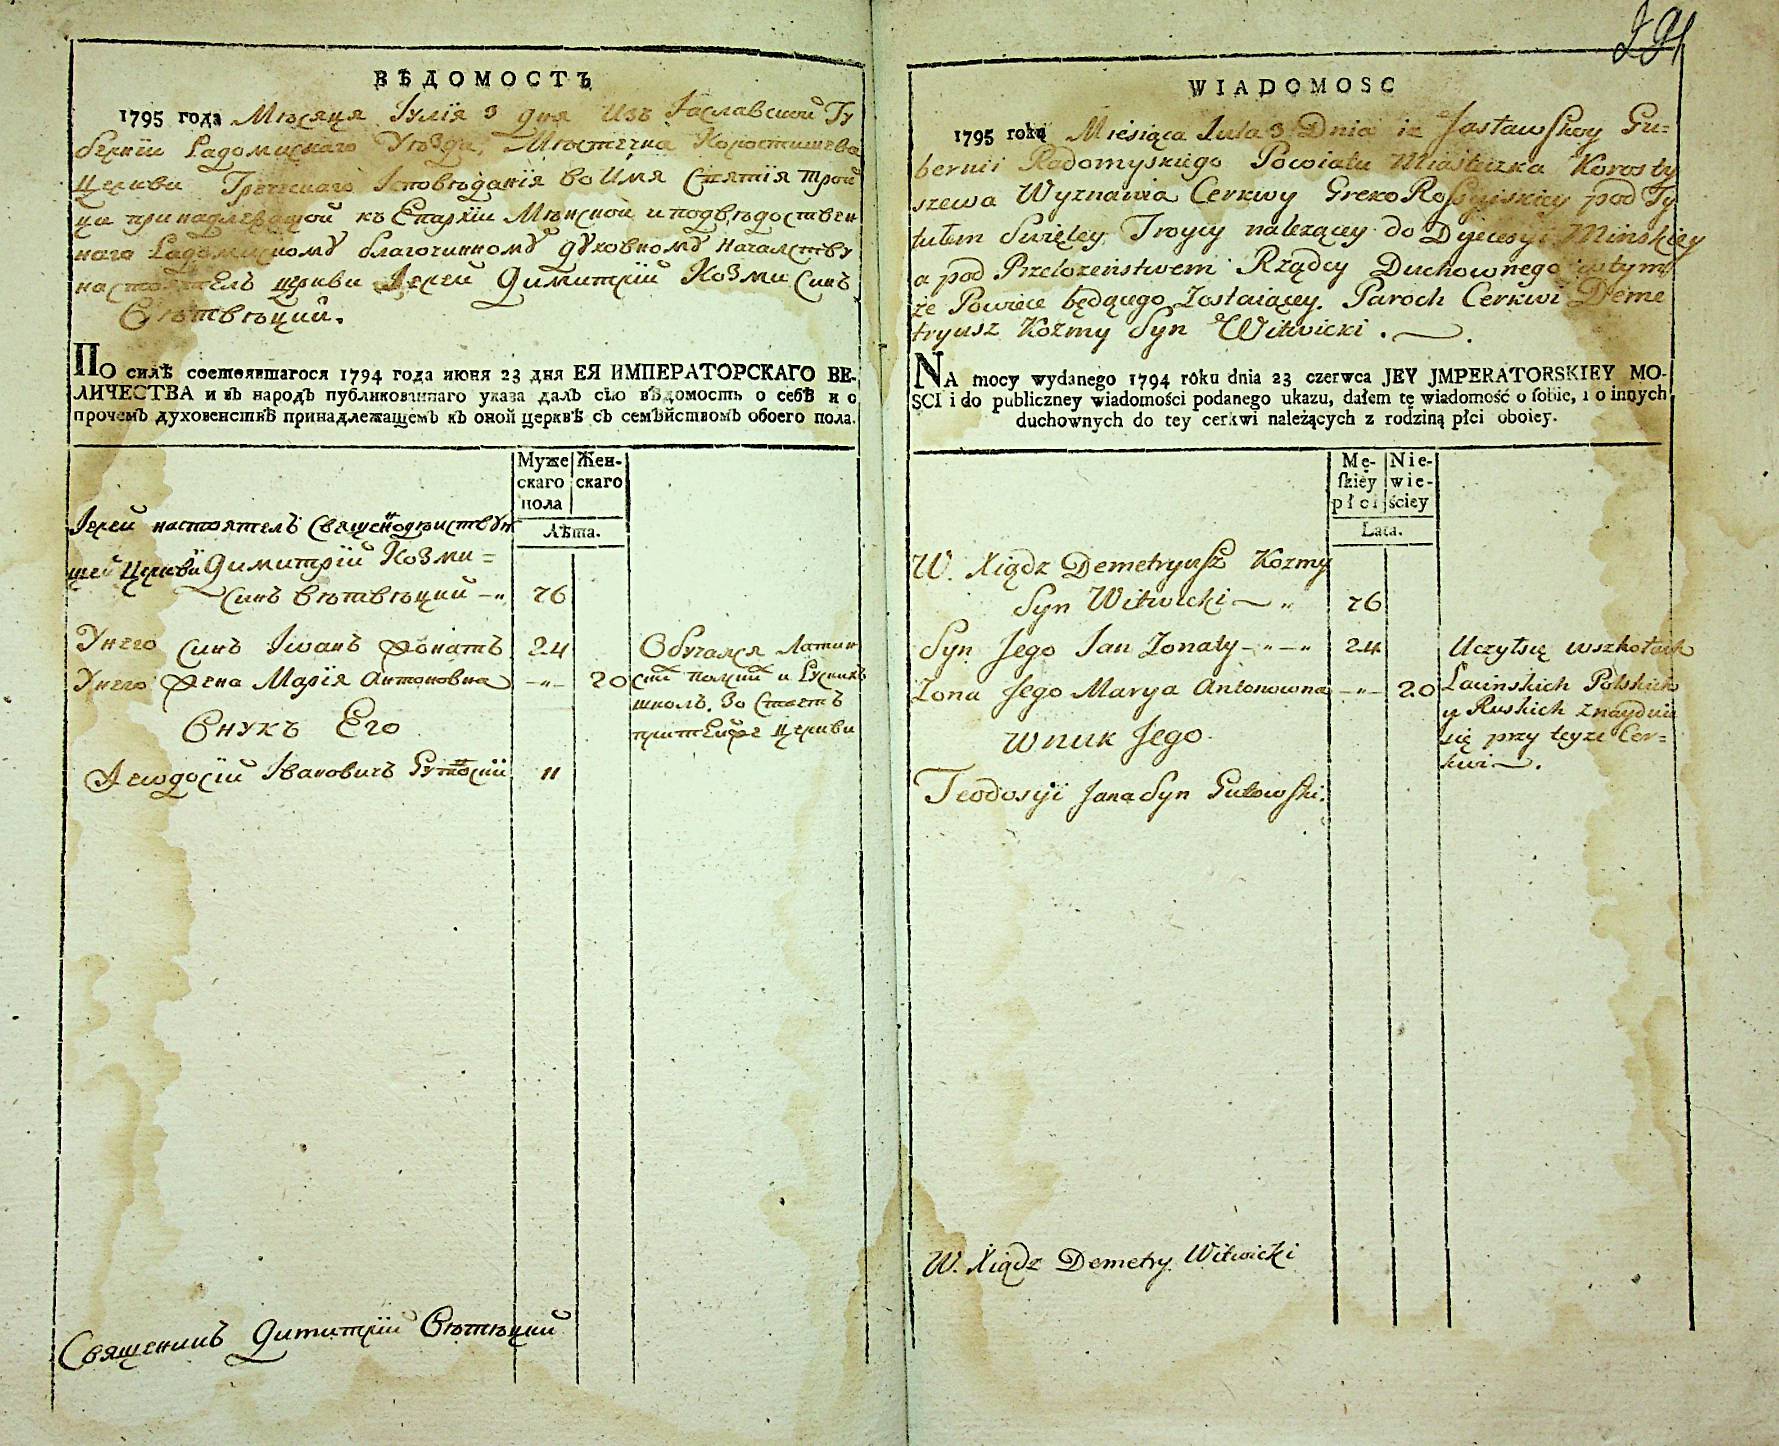 ВѢДОМОСТЬ
1795 года Мѣсяця Іулія 3 дня Изъ Ізаславской Гу
берніи Радомискаго Уѣзда, Мюстечка Коростишева
Церкви Греческаго Ісповѣданія во Имя Святія Трой
ца принадлежащой къ Епархіи Мѣнской и подвѣдоствен
наго Радомискому благочинному духовному началству
настоятелъ церкви Іерей Димитрій Козми Синъ
Вѣтвѣцкий.
ПО силѣ состоявшагося 1794 года июня 23 дня ЕЯ ИМПЕРАТОРСКАГО ВЕ-
ЛИЧЕСТВА и въ народъ публикованнаго указа далъ сію вѣдомость о себѣ и о
прочемъ духовенствѣ принадлежащемъ къ оной церквѣ съ семѣйствомъ обоего пола.
Муже Жен-
скаго скаго
пола
Лѣта.
Іерей настоятелъ Священодѣиствую
щей Церкви Димитрій Козми =
Синъ Вѣтвѣцкий 76
Унего синъ Іоанъ Жонатъ 24 Обучался Латин
Унего Жена Марія Антоновна 20 ских полских и Руских
школъ. Зо Стаетъ
притейже Церкви
Внукъ Его
Феодосій Івановичъ Гутовскій 11
Священикъ Димитрій Вѣтвѣцкий
291
WIADOMOSC
1795 rokų Miesiąca Iula 3 Dnia iz Jasławskoy Gu=
bernii Radomyskiego Powiatu Miasteczka Korosty
szewa Wyznania Cerkwy Greko Rossyiskiey pod Ty
tułem Swiętey Troycy nalezącey do Dyecezyi Minskiey
a pod Przelozeństwem Rządcy Duchownego w tym
że Powiecie będącego Zostaiącey. Paroch Cerkwi Deme
tryusz Kozmy Syn Witwicki.
NA mocy wydanego 1794 roku dnia 23 czerwca JEY JMPERATORSKIEY MO-
SCI i do publiczney wiadomości podanego ukazu, dałem tę wiadomość o sobie, i o innych
duchownych do tey cerkwi należących z rodziną płci oboiey.
Mę- Nie-
skiey wie-
płci ściey
Lata.
W. Xiądz Demetryusz Kozmy
Syn Witwicki 76
Syn Jego Jan Zonaty 24 Uczyłsię wszkołach
Zona Jego Marya Antonowna 20 Lacinskich Polskich
y Ruskich Znayduie
się przy teyze Cer=
kwi.
Wnuk Jego.
Teodosyi Jana Syn Gutowski.
W. Xiądz Demetry Witwicki